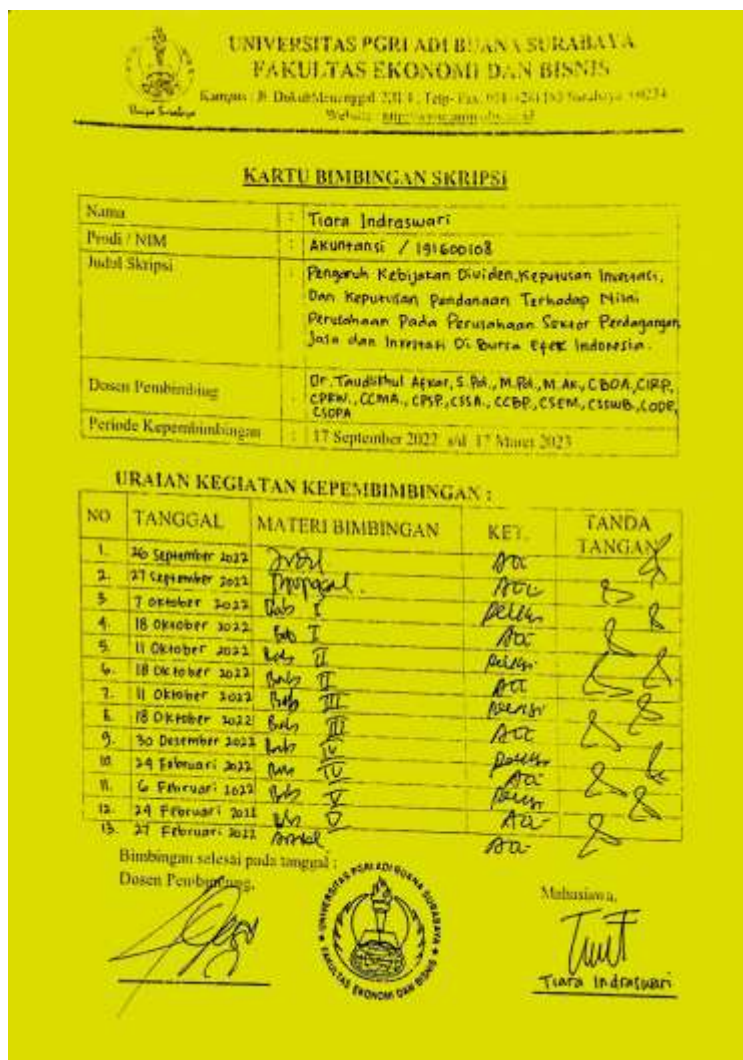 UNIVERSITAS PGRI ADI BUANA SURABAYA
FAKULTAS EKONOMI DAN BISNIS
Kampus : Jl. Dukuh Menanggal XII/4, Telp- Fax.
Website :
KARTU BIMBINGAN SKRIPSI
Nama : Tiara Indraswari
Prodi / NIM : Akuntansi / 191600108
Judul Skripsi : Pengaruh Kebijakan Dividen, Keputusan Investasi,
Dan Keputusan Pendanaan Terhadap Nilai
Perusahaan Pada Perusahaan Sektor Perdagangan,
Jasa dan Investasi Di Bursa Efek Indonesia.
Dosen Pembimbing : Dr. Taudlikhul Afkar, S.Pd., M.Pd., M.AK., CBOA., CIRP,
CPRW., CCMA., CPSP., CSSA., CCBP., CSEM., CSSWB., CODP,
CSOPA
Periode Kepembimbingan : 17 September 2022 s/d 17 Maret 2023
URAIAN KEGIATAN KEPEMBIMBINGAN :
NO TANGGAL MATERI BIMBINGAN KET. TANDA TANGAN
1. 26 September 2022 Judul Acc
2. 27 September 2022 Proposal. Acc
3. 7 Oktober 2022 Bab I Revisi
4. 18 Oktober 2022 Bab I Acc
5. 11 Oktober 2022 Bab II Revisi
6. 18 Oktober 2022 Bab II Acc
7. 11 Oktober 2022 Bab III Revisi
8. 18 Oktober 2022 Bab III Acc
9. 30 Desember 2022 Bab IV Revisi
10. 24 Februari 2022 Bab IV Acc
11. 6 Februari 2022 Bab V Revisi
12. 24 Februari 2022 Bab V Acc
13. 27 Februari 2022 Artikel Acc
Bimbingan selesai pada tanggal :
Dosen Pembimbing,
UNIVERSITAS PGRI ADI BUANA SURABAYA
FAKULTAS EKONOMI DAN BISNIS
Mahasiswa,
Tiara Indraswari